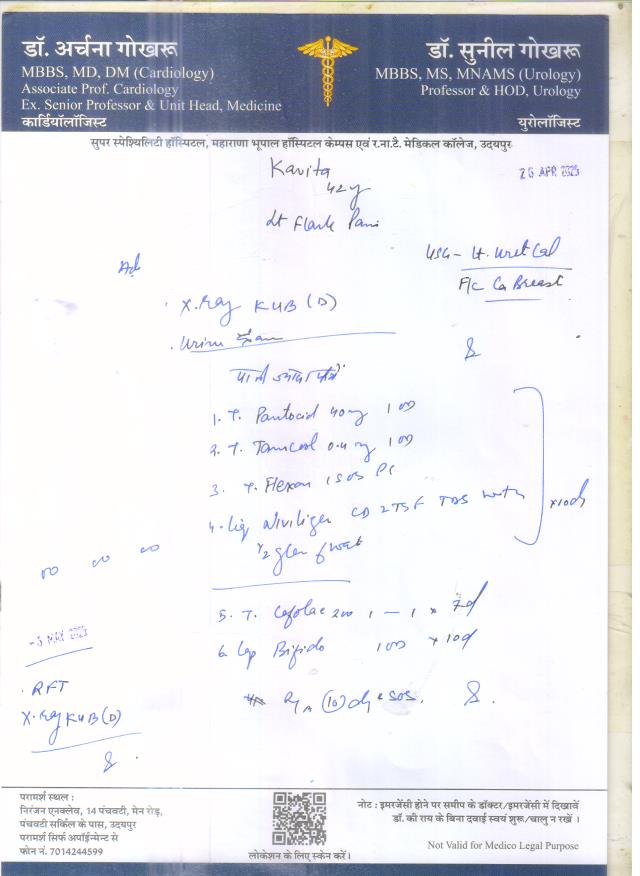 डॉ. अर्चना गोखरू
MBBS, MD, DM (Cardiology)
Associate Prof. Cardiology
Ex. Senior Professor & Unit Head, Medicine
कार्डियॉलॉजिस्ट
डॉ. सुनील गोखरू
MBBS, MS, MNAMS (Urology)
Professor & HOD, Urology
युरोलॉजिस्ट
सुपर स्पेश्यिलिटी हॉस्पिटल, महाराणा भूपाल हॉस्पिटल केम्पस एवं र.ना.टै. मेडिकल कॉलेज, उदयपुर
Kavita
26 APR 2025
42y
Lt Flank Pain
USG - Lt. Uret Cal
F/C Ca Breast
Adv
X.Ray KUB (D)
Urine Exam
पानी ज्यादा पीवें
1. T. Pantocid 40mg 1 OD
2. T. 0.4mg 1 OD
3. T. Flexon 1 SOS PC
4. Liq CD 2TSF TDS with
1/2 glass of wat
x10d
5. T. Cefolac 200 1 — 1 x 7d
6. Cap Bifido 1 OD x10d
(10)d SOS.
-3 MAY 2025
RFT
X.Ray KUB (D)
परामर्श स्थल :
निरंजन एनक्लेव, 14 पंचवटी, मेन रोड़,
पंचवटी सर्किल के पास, उदयपुर
परामर्श सिर्फ अपॉईन्मेन्ट से
फोन नं. 7014244599
लोकेशन के लिए स्केन करें।
नोट : इमरजेंसी होने पर समीप के डॉक्टर/इमरजेंसी में दिखावें
डॉ. की राय के बिना दवाई स्वयं शुरू/चालु न रखें ।
Not Valid for Medico Legal Purpose